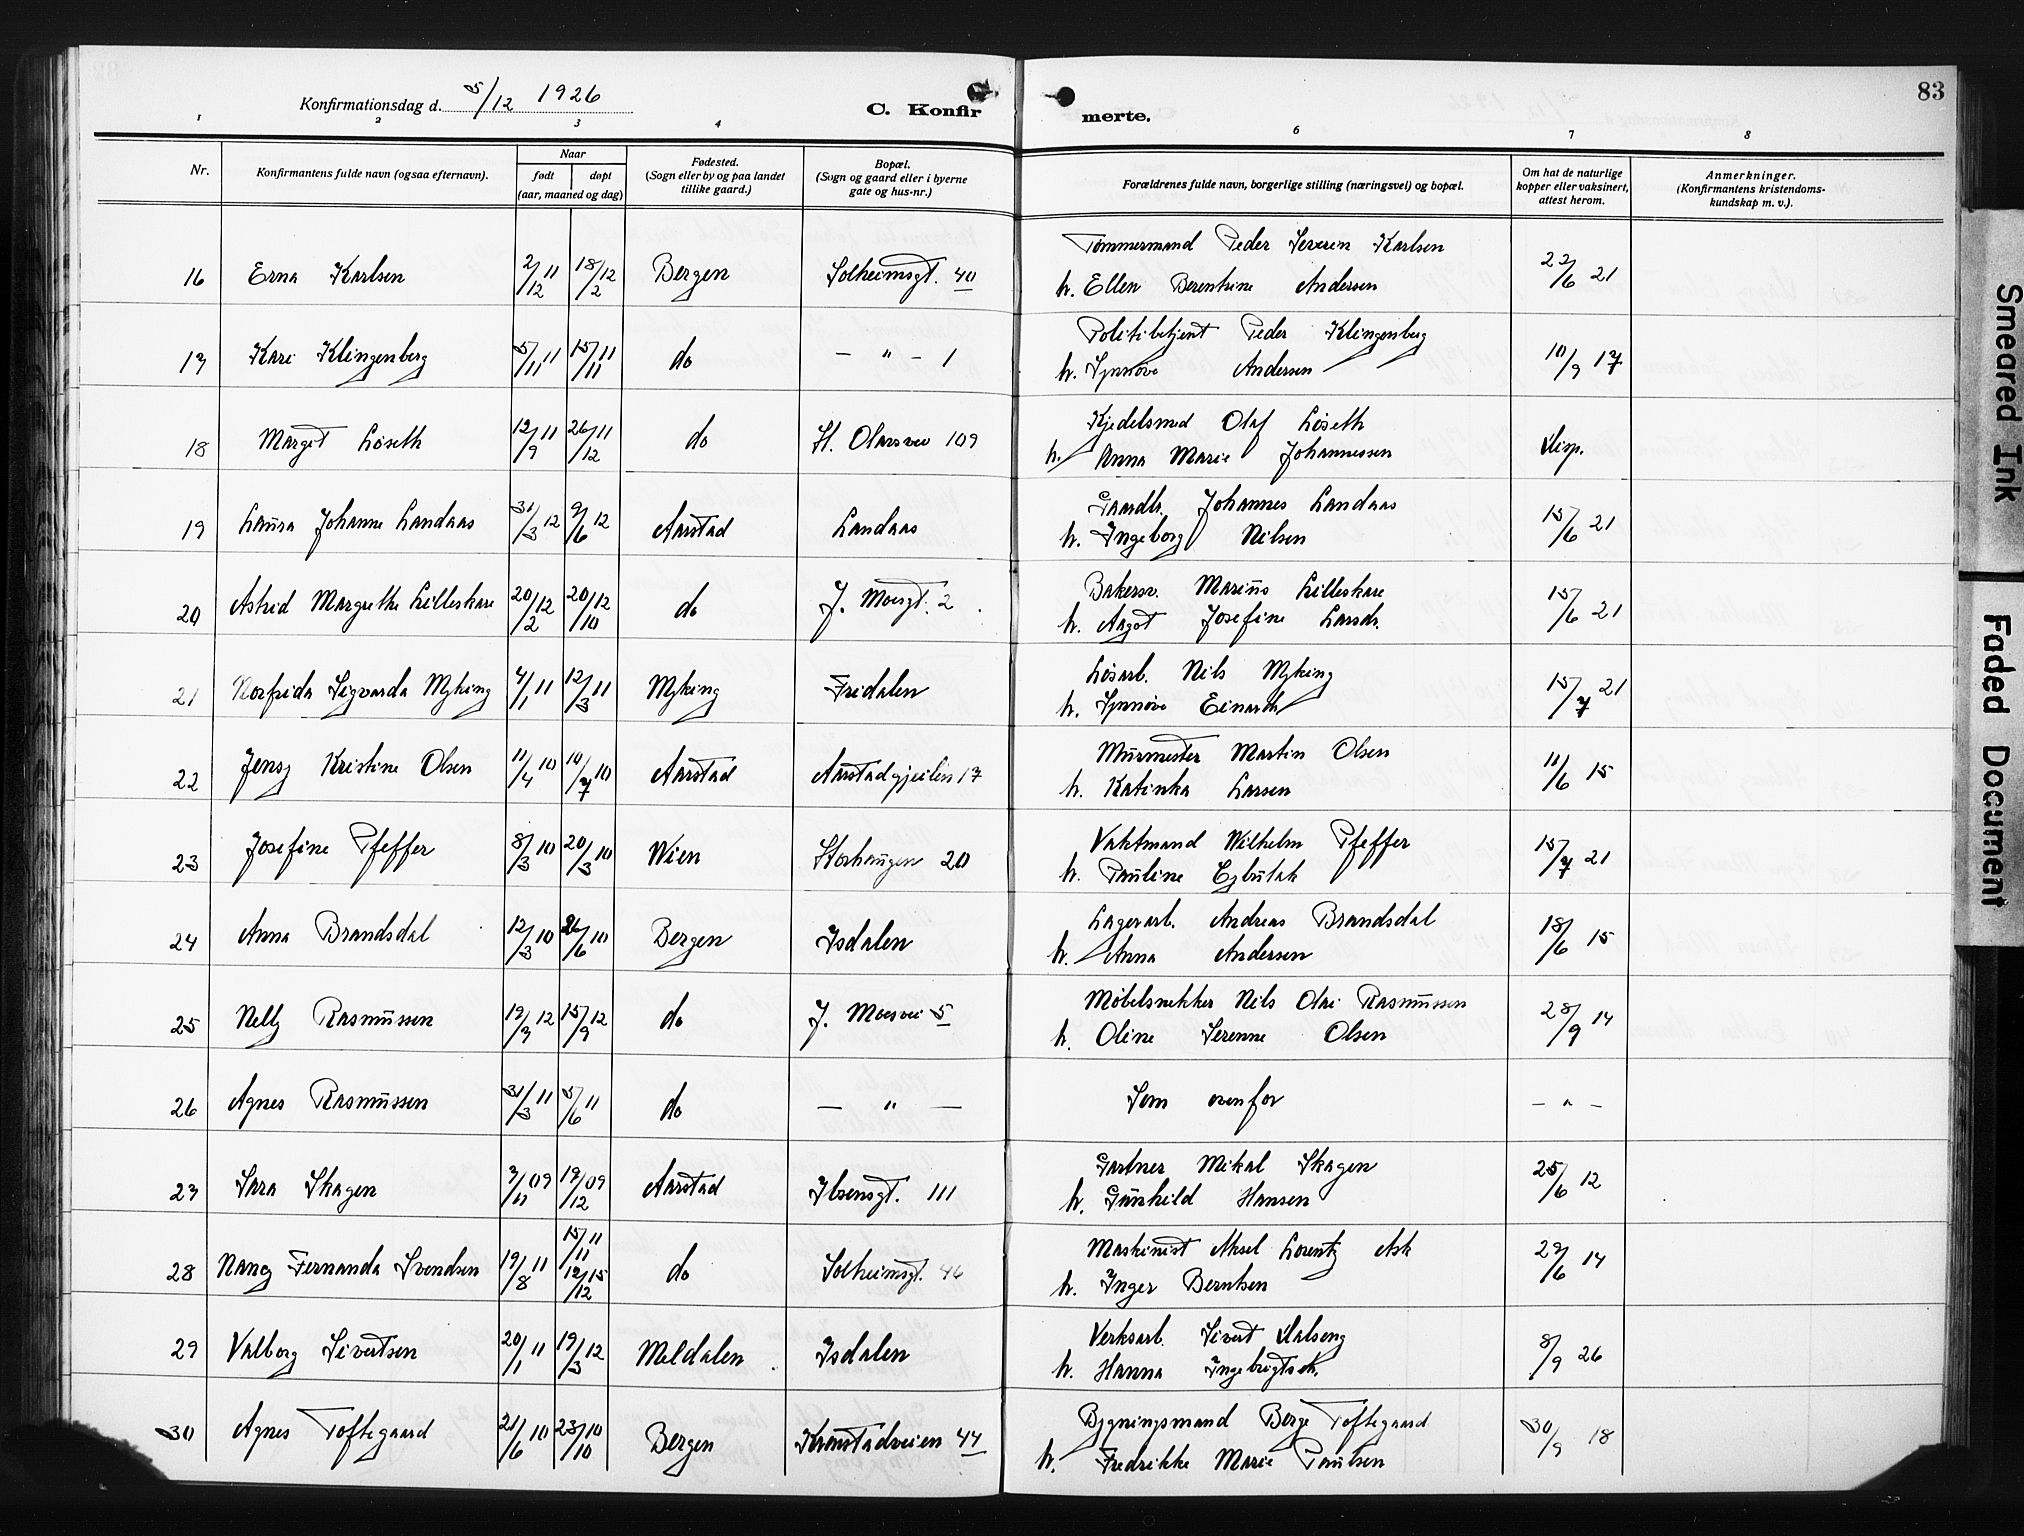 83
Konfirmationsdag d. 5/12 1926
C. Konfirmerte.
1 2 3 4 5 6 7 8
Nr. | Konfirmantens fulde navn (ogsaa efternavn). | Naar født døpt (aar, maaned og dag) | Fødested. (Sogn eller by og paa landet tillike gaard.) | Bopæl. (Sogn og gaard eller i byerne gate og hus-nr.) | Forældrenes fulde navn, borgerlige stilling (næringsvei) og bopæl. | Om hat de naturlige kopper eller vaksinert, attest herom. | Anmerkninger. (Konfirmantens kristendomskundskap m. v.).
16 Erna Karlsen 2/12 11 18/2 12 Bergen Solheimsgt. 40 Tømmermand Peder Severin Karlsen 22/6 21
h. Ellen Berentine Andersen
17 Kari Klingenberg 5/11 11 15/11 11 do — " — 1 Politibetjent Peder Klingenberg 10/9 17
h. Synnøve Andersen
18 Margot Løseth 12/9 11 26/12 11 do St. Olavsvei 109 Kjedelsmed Olaf Løseth Disp.
h. Anna Marie Johannessen
19 Laura Johanne Landaas 31/3 12 9/6 12 Aarstad Landaas Gaardb. Johannes Landaas 15/6 21
h. Ingeborg Nilsen
20 Astrid Margrethe Lilleskare 20/2 12 20/10 12 do J. Moesgt. 2 Bakersv. Marius Lilleskare 15/6 21
h. Aagot Josefine Larsdr.
21 Norfrida Sigvarda Myking 4/1 11 12/3 11 Myking Fridalen Løsarb. Nils Myking 15/7 21
h. Synnøve Einarsdr
22 Jensy Kristine Olsen 11/4 10 10/7 10 Aarstad Aarstadgjeilen 17 Murmester Martin Olsen 11/6 15
h. Katinka Larsen
23 Josefine Pfeffer 8/3 10 20/3 10 Wien Storhaugen 20 Vaktmand Wilhelm Pfeffer 15/7 21
h. Pauline
24 Anna Brandsdal 12/3 10 26/6 10 Bergen Isdalen Lagerarb. Andreas Brandsdal 18/6 15
h. Anna Andersen
25 Nelly Rasmussen 12 15/9 12 do J. Moesvei 5 Møbelsnekker Nils Olai Rasmussen 28/9 14
h. Oline Serenne Olsen
26 Agnes Rasmussen 31/3 11 5/6 11 do — " — Som ovenfor — " —
27 Sara Skagen 7/11 09 19/12 09 Aarstad Ibsensgt. 111 Gartner Mikal Skagen 25/6 12
h. Gunhild Hansen
28 Nancy Fernanda Svendsen 19/8 11 15/11 11 12/12 15 do Solheimsgt. 46 Maskinist Aksel Lorentz Ask 29/6 14
h. Inger Berntsen
29 Valborg Sivertsen 20/1 11 19/3 12 Meldalen Isdalen Verksarb. Sivert 8/9 26
h. Hanna Ingebrigtsdr.
30 Agnes Toftegaard 21/6 10 23/10 10 Bergen Kronstadveien 44 Bygningsmand Berge Toftegaard 30/9 18
h. Fredrikke Marie Paulsen
Smeared Ink
Faded Document